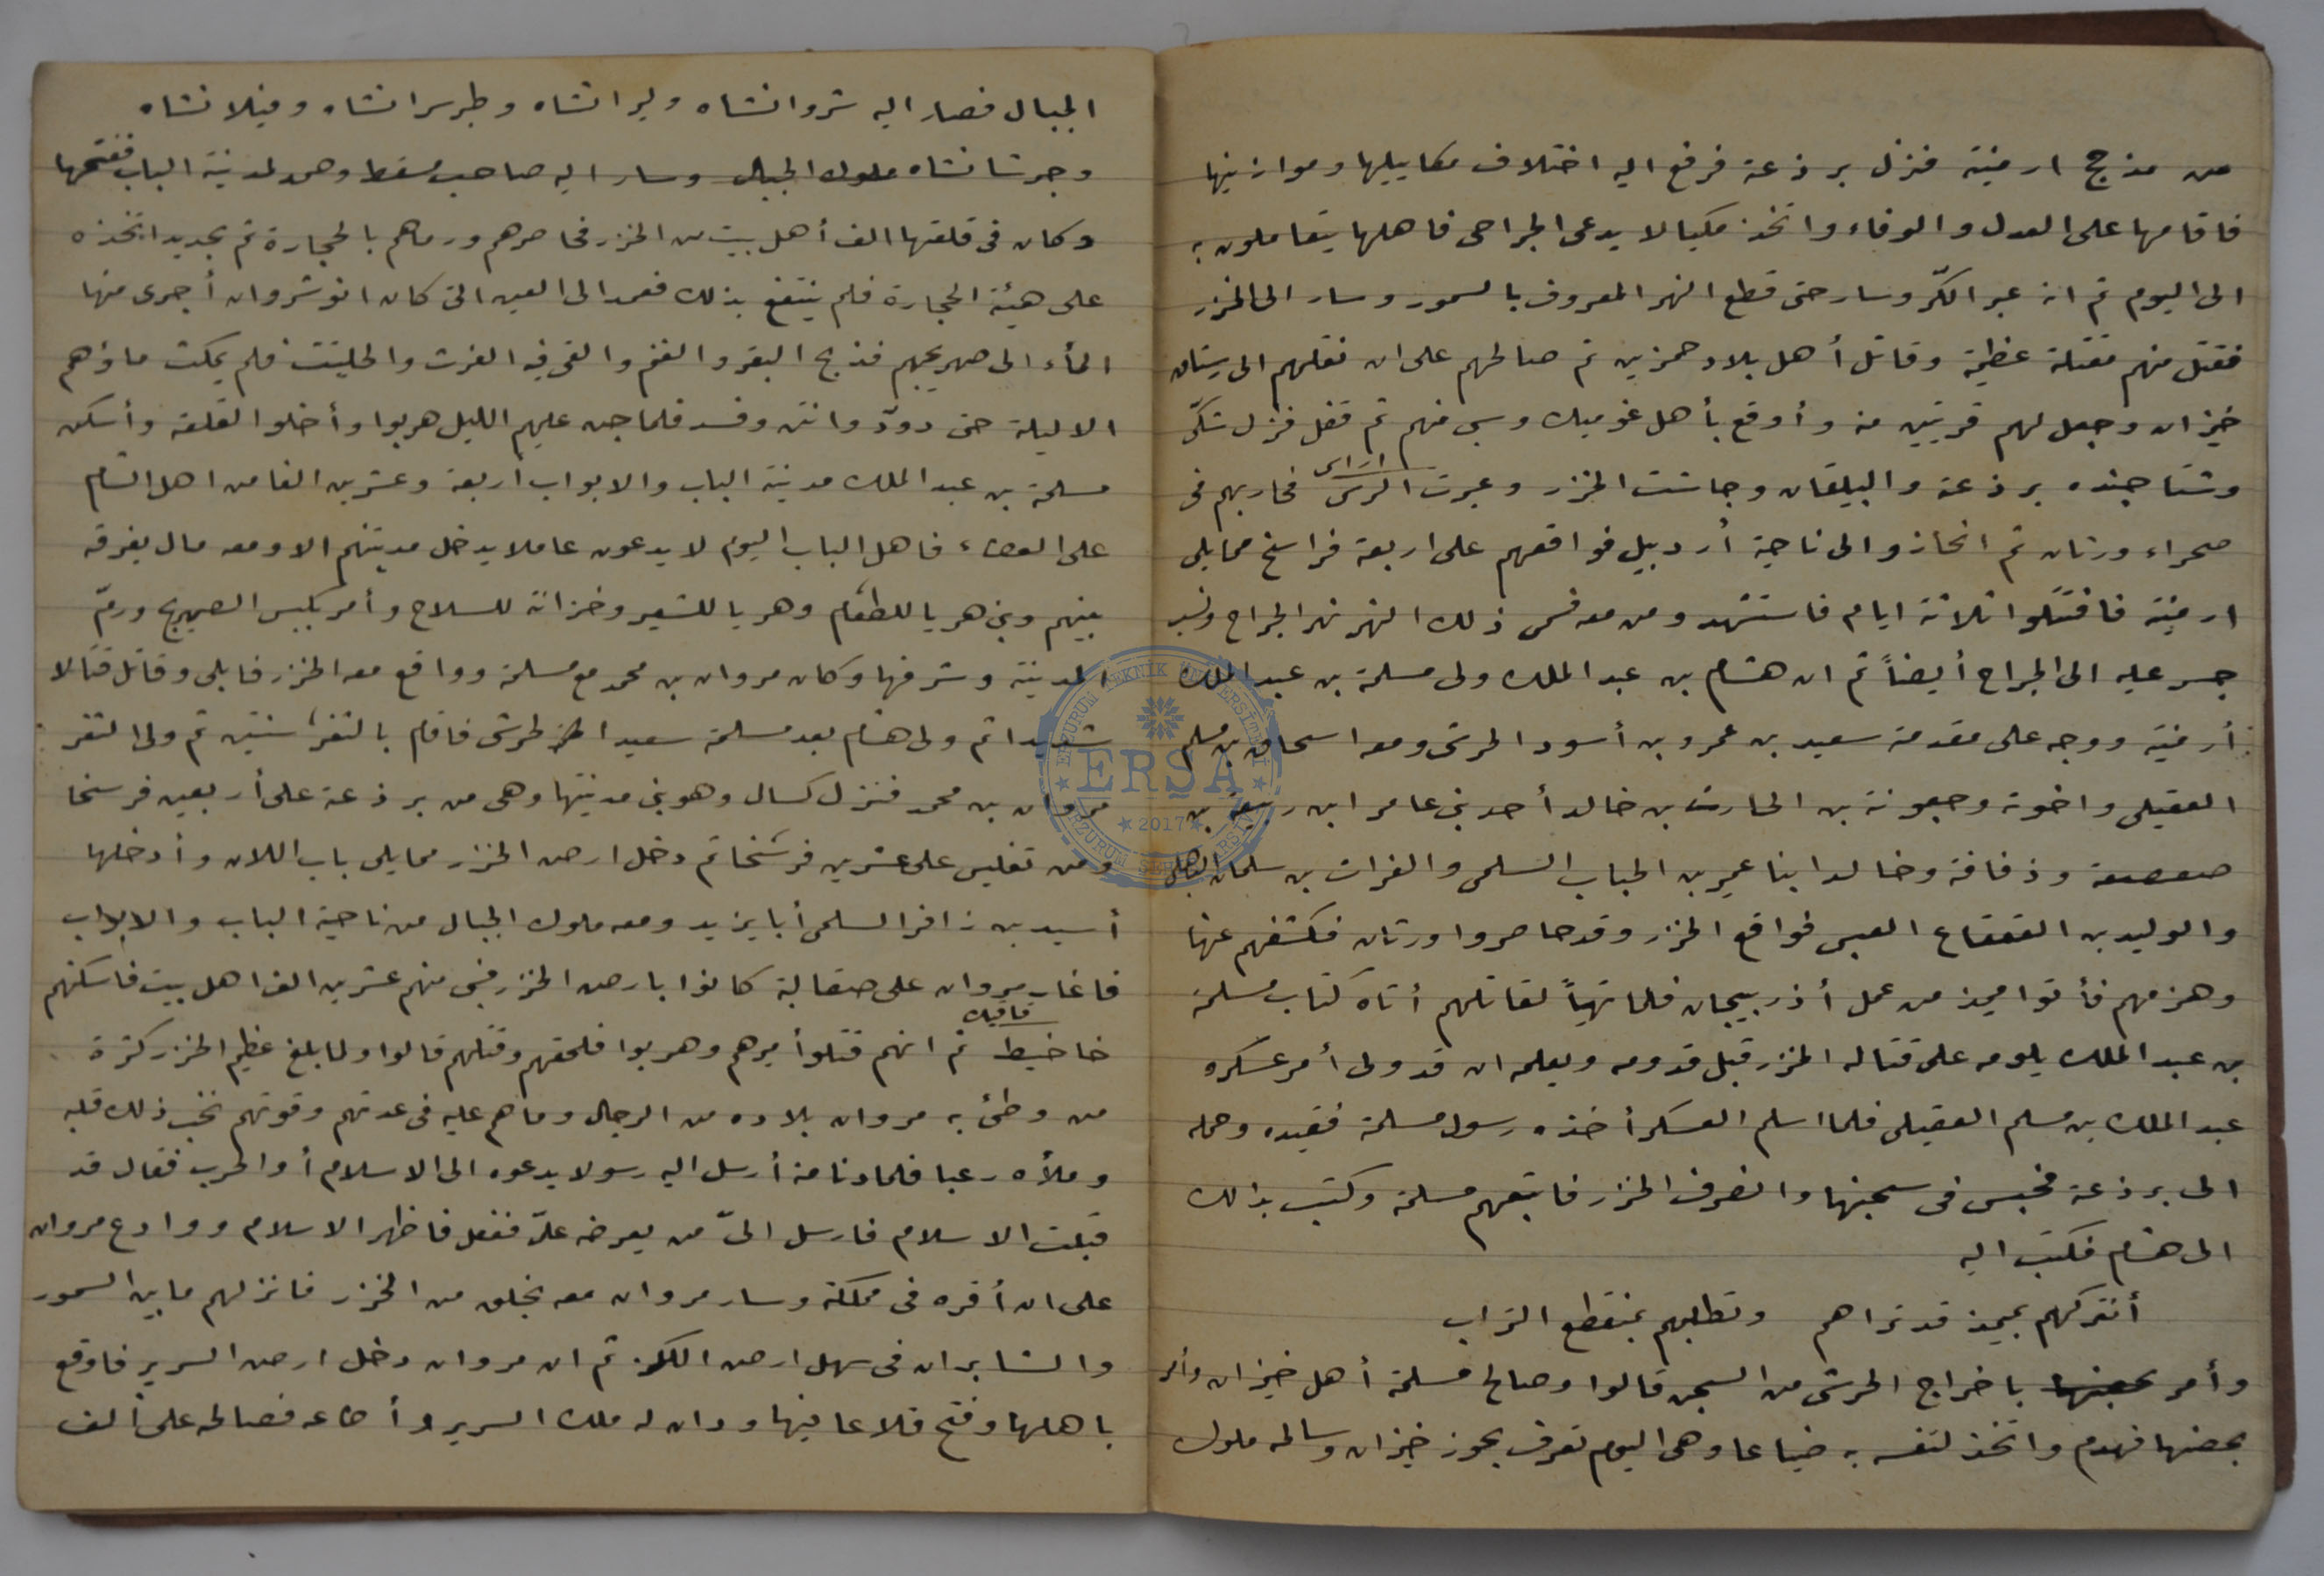 من مذحج ارمينية فنزل برذعة فرفع اليه اختلاف مكاييلها وموازينها
فاقامها على العدل والوفاء واتخذ مكيالا يدعى الجراحى فاهلها يتعاملون به
الى اليوم ثم انه عبر الكرّ وسار حتى قطع النهر المعروف بالسمور وسار الى الخزر
فقتل منهم مقتلة عظيمة وقاتل أهل بلاد حمزين ثم صالحهم على ان نقلهم الى رستاق
خيزان وجعل لهم قريتين منه وأوقع بأهل غوميك وسبى منهم ثم قفل فنزل شكّى
وشتا جنده برذعة والبيلقان وجاشت الخزر وعبرت الرس فحاربهم فى
صحراء ورثان ثم انحازوا الى ناحية أردبيل فواقعهم على اربعة فراسخ مما يلى
ارمينية فاقتتلوا ثلاثة ايام فاستشهد ومن معه فسمى ذلك النهر نهر الجراح ونسب
جسر عليه الى الجراح أيضاً ثم ان هشام بن عبد الملك ولى مسلمة بن عبد الملك
أرمينية ووجه على مقدمته سعيد بن عمرو بن أسود الحرشى ومعه اسحاق بن مسلم
العقيلى واخوته وجعونة بن الحارث بن خالد أحد بنى عامر ابن ربيعة بن
صعصعة وذفافة وخالد ابنا عمير بن الحباب السلمى والفرات بن سلمان الباهلى
والوليد بن القعقاع العبسى فواقع الخزر وقد حاصروا ورثان فكشفهم عنها
وهزمهم فأتوا ميمذ من عمل أذربيجان فلما تهيأ لقتالهم أتاه كتاب مسلمة
بن عبد الملك يلومه على قتاله الخزر قبل قدومه ويعلمه ان قد ولى أمر عسكره
عبد الملك بن مسلم العقيلى فلما اسلم العسكر أخذه رسول مسلمة فقيده وحمله
الى برذعة فحبس فى سجنها وانصرف الخزر فاتبعهم مسلمة وكتب بذالك
الى هشام فكتب اليه
أتتركهم بميمذ قد تراهم وتطلبهم بمنقطع التراب
وأمر بحصنها باخراج الحرشى من السجن قالوا وصالح مسلمة أهل خيزان وأمر
بحصنها فهدم واتخذ لنفسه به ضياعا وهى اليوم تعرف بحوز خيزان وسالمه ملوك
الجبال فصار اليه شروانشاه وليرانشاه وطبرسرانشاه وفيلانشاه
وجرشانشاه ملوك الجبال وسار اليه صاحب مسقط وصمد لمدينة الباب ففتحها
وكان فى قلعتها الف أهل بيت من الخزر فحاصرهم ورماهم بالحجارة ثم بحديد اتخذه
على هيئة الحجارة فلم ينتفع بذلك فعمد الى العين التى كان انوشروان أجرى منها
الماء الى صهريجهم فذبح البقر والغنم والقى فيه الفرث والحلتيت فلم يمكث ماؤهم
الا ليلة حتى دوّد وانتن وفسد فلما جن عليهم الليل هربوا وأخلوا القلعة وأسكن
مسلمة بن عبد الملك مدينة الباب والابواب اربعة وعشرين الفا من اهل الشام
على العطاء فاهل الباب اليوم لا يدعون عاملا يدخل مدينتهم الا ومعه مال يفرقه
بينهم وبنى هريا للطعام وهريا للشعير وخزانة للسلاح وأمر بكبس الصهريج ورمّ
المدينة وشرفها وكان مروان بن محمد مع مسلمة وواقع معه الخزر فابلى وقاتل قتالا
شديدا ثم ولى هشام بعد مسلمة سعيد الحرشى فاقام بالثغر سنتين ثم ولى الثغر
مروان بن محمد فنزل كسال وهو بنى مدينتها وهى من برذعة على أربعين فرسخا
ومن تفليس على عشرين فرسخا ثم دخل ارض الخزر مما يلى باب اللان وأدخلها
أسيد بن زافر السلمى أبا يزيد ومعه ملوك الجبال من ناحية الباب والابواب
فاغار مروان على صقالبة كانوا بارض الخزر فسبى منهم عشرين الف اهل بيت فاسكنهم
خاخيط ثم انهم قتلوا أميرهم وهربوا فلحقهم وقتلهم قالوا ولما بلغ عظيم الخزر كثرة
من وطئ به مروان بلاده من الرجال وما هم عليه فى عدتهم وقوتهم نخب ذلك قلبه
وملأه رعبا فلما دنا منه أرسل اليه رسولا يدعوه الى الاسلام أو الحرب فقال قد
قبلت الاسلام فارسل الىّ من يعرضه علىّ ففعل فاظهر الاسلام ووادع مروان
على ان أقره فى مملكته وسار مروان معه بخلق من الخزر فانزلهم ما بين السمور
والشابران فى سهل ارض اللكز ثم ان مروان دخل ارض السرير فاوقع
باهلها وفتح قلاعا فيها ودان له ملك السرير وأطاعه فصالحه على ألف
ERZURUM TEKNİK ÜNİVERSİTESİ
ERŞA
2017
ERZURUM ŞEHİR ARŞİVİ